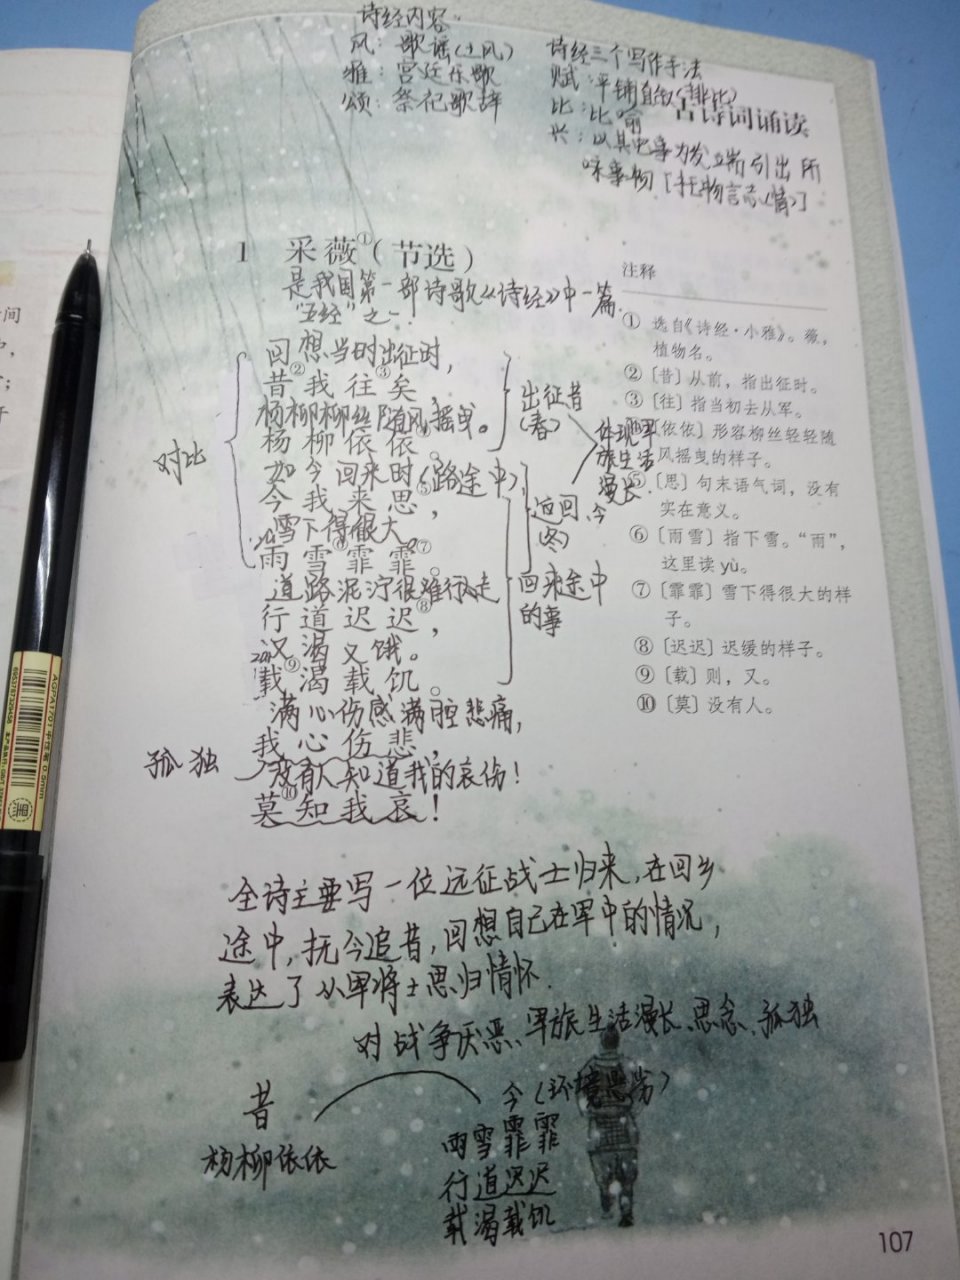 诗经内容:
风：歌谣(土风)
雅：宫廷乐歌
颂：祭祀歌辞
诗经三个写作手法
赋：平铺直叙(排比)
比：比喻
兴：以其它事为发端引出所
咏事物[托物言志(情)]
古诗词诵读
1 采薇①(节选)
是我国第一部诗歌《诗经》中一篇.
"五经"之一.
回想当时出征时，
昔②我往③矣，
杨柳柳丝随风摇曳。
杨柳依依。
如今回来时(路途中)，
今我来思⑤，
雪下得很大。
雨⑥雪霏霏⑦。
道路泥泞很难行走
行道迟迟⑧，
又渴又饿。
载⑨渴载饥。
满心伤感满腔悲痛，
我心伤悲，
没有人知道我的哀伤！
莫⑩知我哀！
对比
孤独
出征昔
(春)
体现军
旅生活
漫长.
返回、今
(冬)
回来途中
的事
注释
① 选自《诗经·小雅》。薇，
植物名。
②〔昔〕从前，指出征时。
③〔往〕指当初去从军。
〔依依〕形容柳丝轻轻随
风摇曳的样子。
⑤〔思〕句末语气词，没有
实在意义。
⑥〔雨雪〕指下雪。“雨”，
这里读yù。
⑦〔霏霏〕雪下得很大的样
子。
⑧〔迟迟〕迟缓的样子。
⑨〔载〕则，又。
⑩〔莫〕没有人。
全诗主要写一位远征战士归来，在回乡
途中，抚今追昔，回想自己在军中的情况，
表达了从军将士思归情怀.
对战争厌恶、军旅生活漫长、思念、孤独
昔
杨柳依依
今(环境恶劣)
雨雪霏霏
行道迟迟
载渴载饥
107